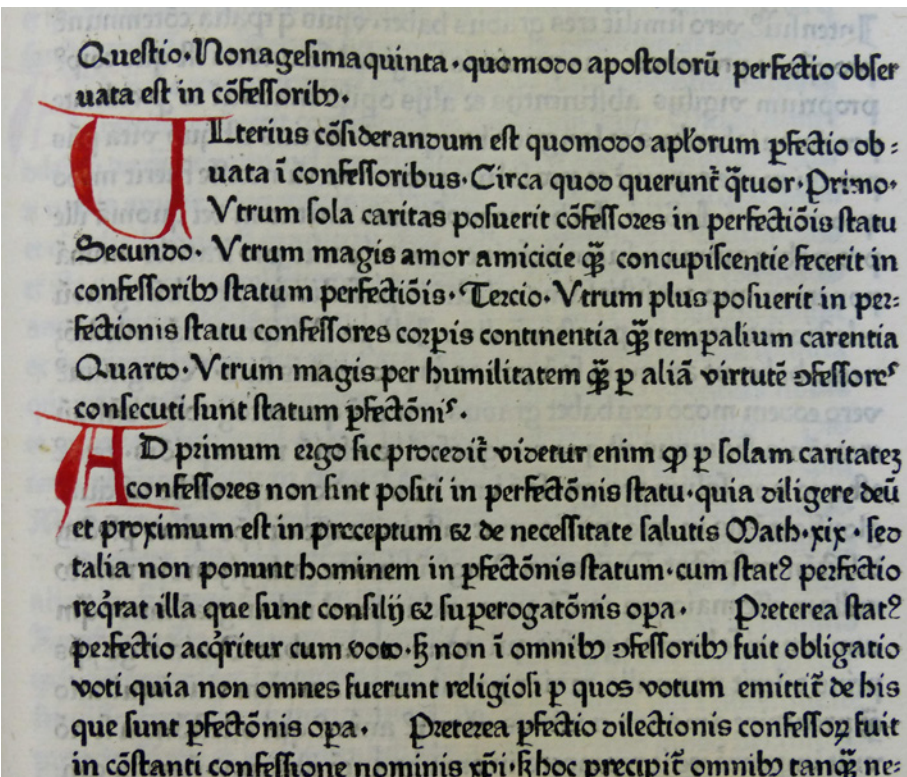 Questio. Nonagesima quinta. quomodo apostolorū perfectio obser
uata est in cōfessoribꝫ.
ULterius cōsiderandum est quomodo apłorum ꝑfectio ob=
uata ī confessoribus. Circa quod querunt᷑ q̄tuor. Primo.
Vtrum sola caritas posuerit cōfessores in perfectiōis statu
Secundo. Vtrum magis amor amicicie qᷓꝫ concupiscentie fecerit in
confessoribꝫ statum perfectiōis. Tercio. Vtrum plus posuerit in per=
fectionis statu confessores corpis continentia qᷓꝫ tempalium carentia
Quarto. Vtrum magis per humilitatem qᷓꝫ ꝑ aliā virtutē ꝯfessores
consecuti sunt statum ꝑfectōnis.
AD primum ergo sic procedit᷑ videtur enim ꝙ ꝑ solam caritateꝫ
confessores non sint positi in perfectōnis statu. quia diligere deū
et proximum est in preceptum ⁊ de necessitate salutis Math. xix. sed
talia non ponunt hominem in ꝑfectōnis statum. cum statꝰ perfectio
reqͥrat illa que sunt consilij ⁊ superogatōnis opa. Preterea statꝰ
perfectio acqͥritur cum voto. ß non ī omnibꝫ ꝯfessoribꝫ fuit obligatio
voti quia non omnes fuerunt religiosi ꝑ quos votum emittit᷑ de his
que sunt ꝑfectōnis opa. Preterea ꝑfectio dilectionis confessoꝝ fuit
in cōstanti confessione nominis xp̄i. ß hoc precipit᷑ omnibꝫ tanqᷓꝫ ne=